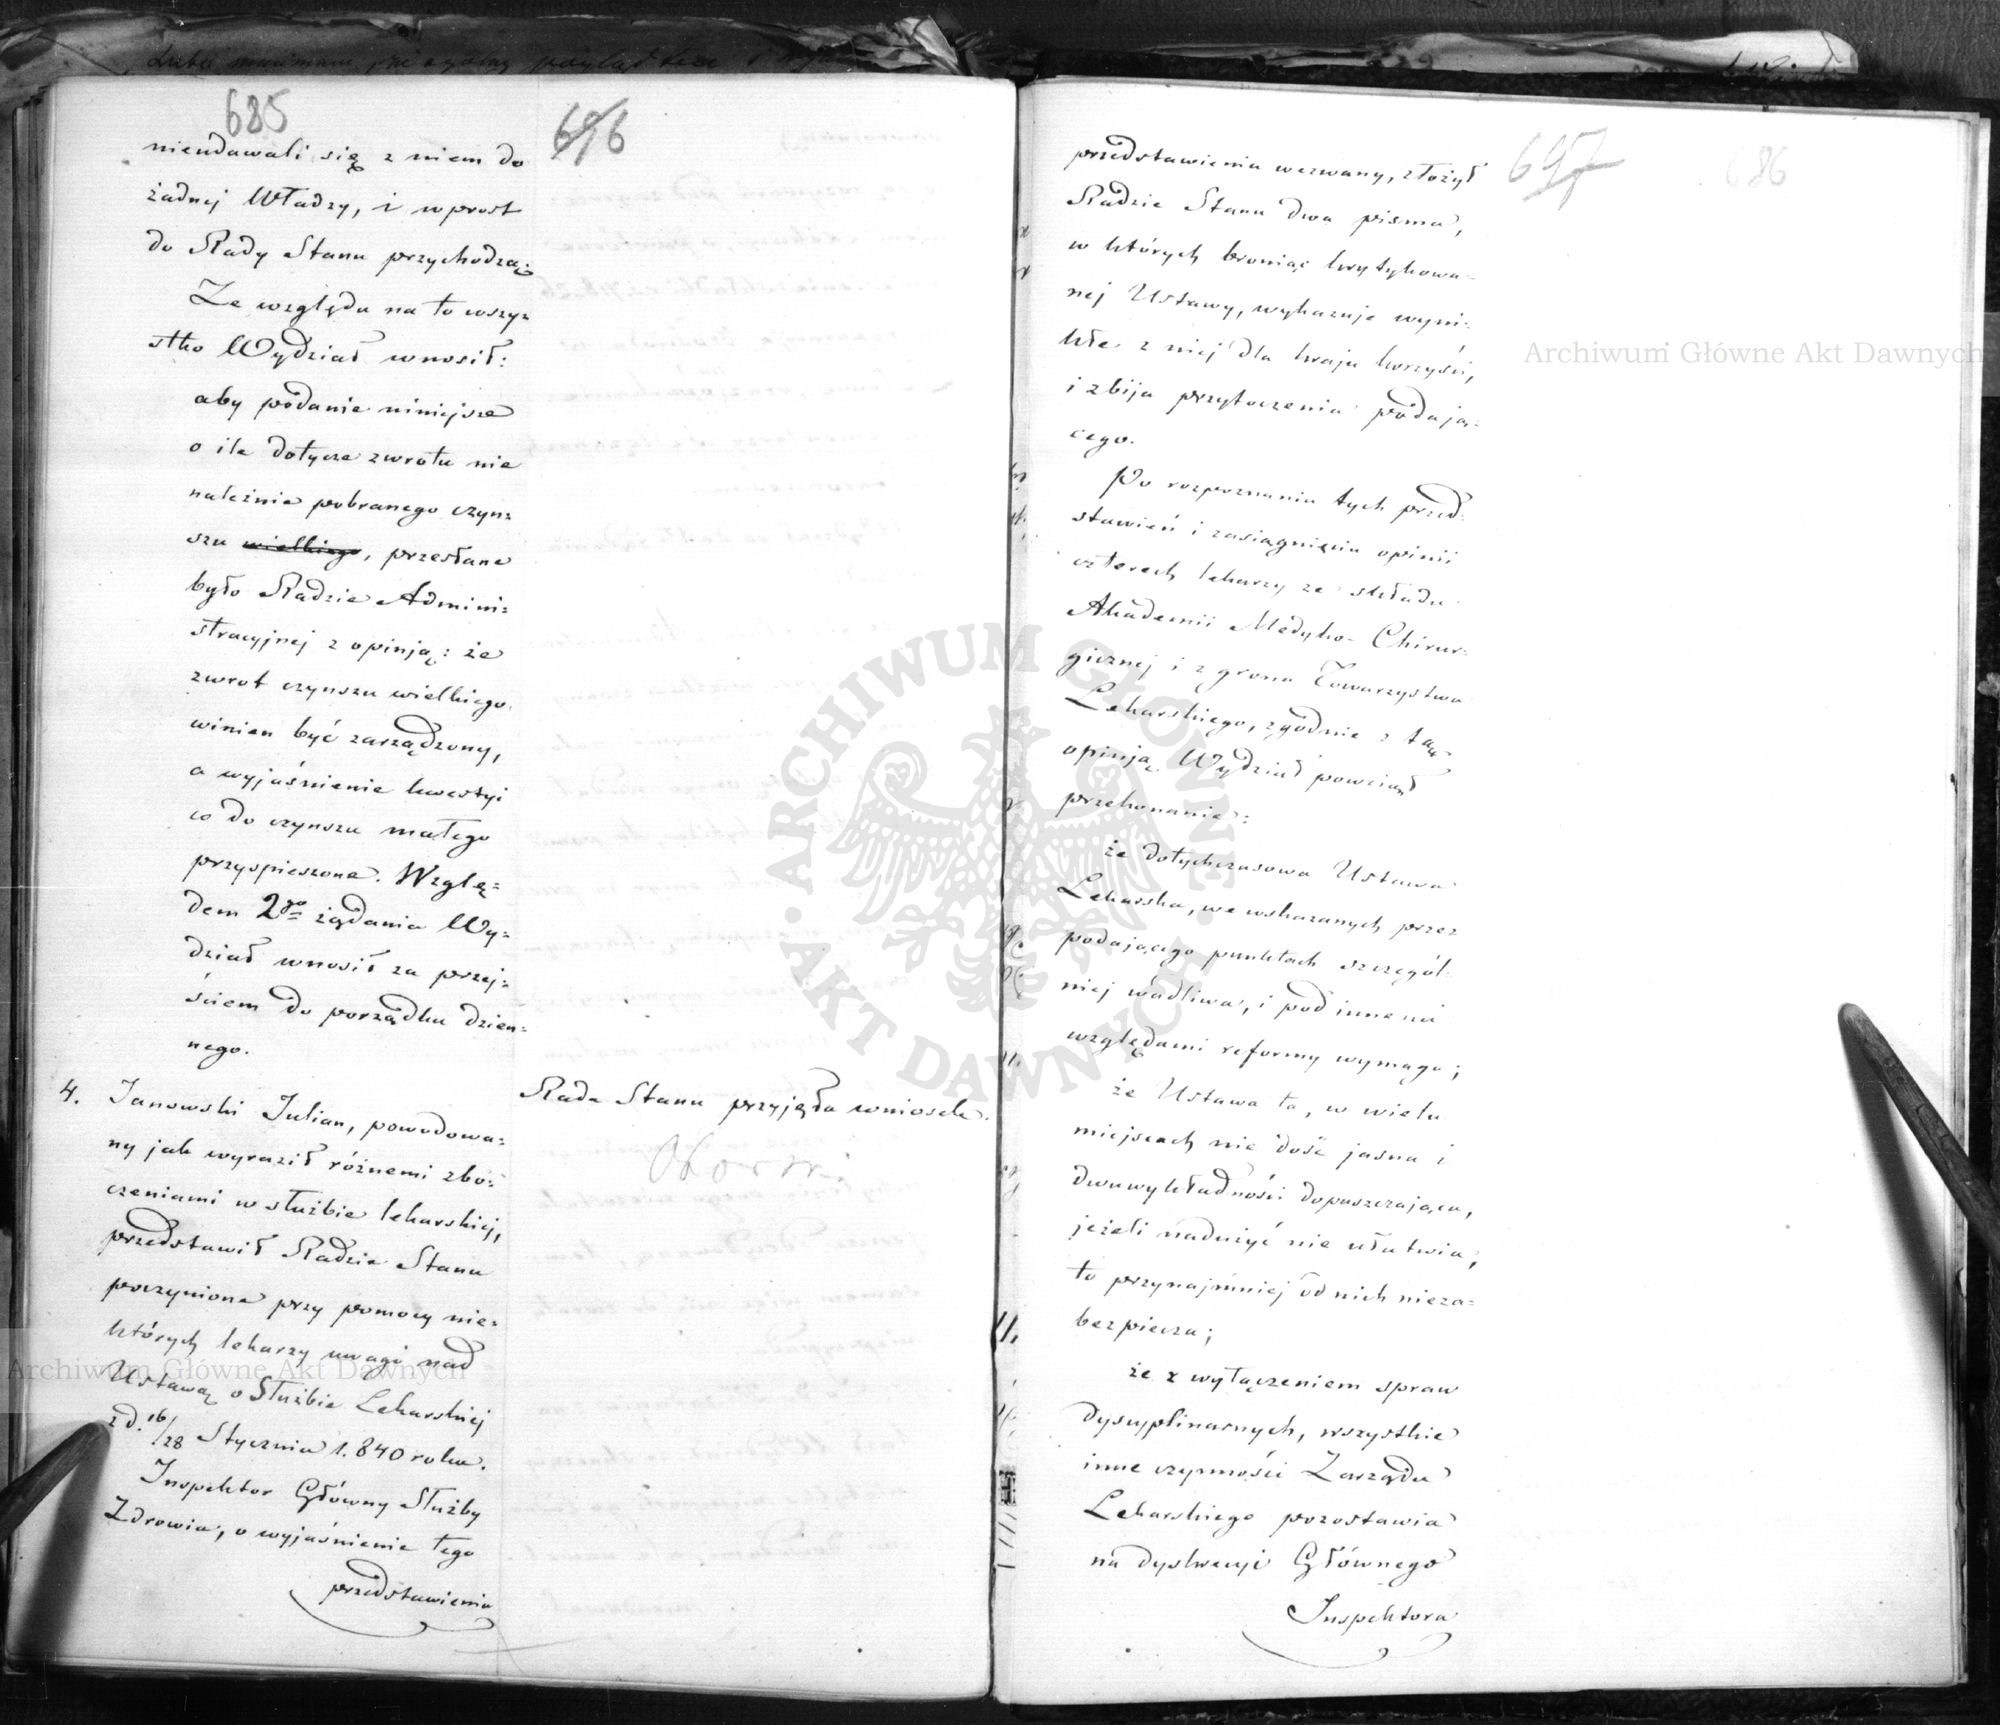 685
696
nieudawali się z niem do
żadnej Władzy, i wprost
do Rady Stanu przychodzą.
Ze względu na to wszy=
stko Wydział wnosił:
aby podanie niniejsze
o ile dotycze zwrotu nie
należnie pobranego czyn=
szu wielkiego, przesłane
było Radzie Admini=
stracyjnej z opinją: że
zwrot czynszu wielkiego
winien być zarządzony,
a wyjaśnienie kwestyi
co do czynszu małego
przyspieszone. Wzglę=
dem 2go żądania Wy=
dział wnosił za przej=
ściem do porządku dzien=
nego.
4. Janowski Julian, powodowa=
ny jak wyraził różnemi zbo=
czeniami w służbie lekarskiej,
przedstawił Radzie Stanu
poczynione przy pomocy nie=
których lekarzy uwagi nad
Ustawą o Służbie Lekarskiej
z d. 16/28 Stycznia 1.840 roku.
Inspektor Główny Służby
Zdrowia, o wyjaśnienie tego
przedstawienia
Rada Stanu przyjęła wniosek.
697
686
przedstawienia wezwany, złożył
Radzie Stanu dwa pisma,
w których broniąc krytykowa=
nej Ustawy, wykazuje wyni=
kłe z niej dla kraju korzyści,
i zbija przytoczenia podają=
cego.
Po rozpoznaniu tych przed=
stawień i zasiągnięciu opinii
czterech lekarzy ze składu
Akademii Medyko-Chirur=
gicznej i z grona Towarzystwa
Lekarskiego, zgodnie z tą
opinją Wydział powziął
przekonanie:
że dotychczasowa Ustawa
Lekarska, we wskazanych przez
podającego punktach szczegól=
niej wadliwa, i pod innemi
względami reformy wymaga;
że Ustawa ta, w wielu
miejscach nie dość jasna i
dwuwykładności dopuszczająca,
jeżeli nadużyć nie ułatwia,
to przynajmniej od nich nieza=
bezpiecza;
że z wyłączeniem spraw
dyscyplinarnych, wszystkie
inne czynności Zarządu
Lekarskiego pozostawia
na dyskrecyi Głównego
Inspektora
Archiwum Główne Akt Dawnych
Archiwum Główne Akt Dawnych
ARCHIWUM GŁÓWNE AKT DAWNYCH